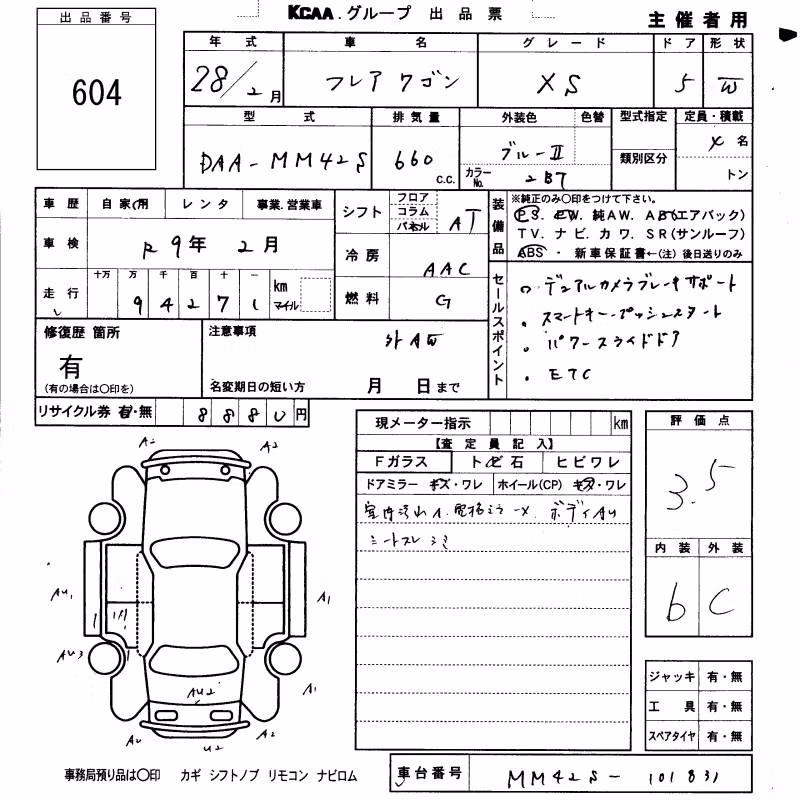 出品番号
604
KCAA.グループ 出品票
主催者用
年式 車名 グレード ドア 形状
28/2月 フレアワゴン XS 5 W
型式 排気量 外装色 色替 型式指定 定員・積載
DAA-MM42S 660 c.c. ブルーⅡ カラーNo. 2B7 類別区分 名 トン
車歴 自家用 レンタ 事業.営業車
車検 R9年 2月
走行 十万 万 千 百 十 一 km マイル
94271
シフト フロア コラム パネル AT
冷房 AAC
燃料 G
装備品
※純正のみ〇印をつけて下さい。
PS. PW. 純AW. AB(エアバック)
TV. ナビ. カワ. SR(サンルーフ)
ABS ・ 新車保証書←(注) 後日送りのみ
セールスポイント
デュアルカメラブレーキサポート
・スマートキー・プッシュスタート
・パワースライドドア
・ETC
修復歴 箇所
有
(有の場合は〇印を)
注意事項
外AW
名変期日の短い方 月 日まで
リサイクル券 有・無 8880円
現メーター指示 km
【査定員記入】
Fガラス トビ石 ヒビワレ
ドアミラー キズ・ワレ ホイール(CP) キズ・ワレ
室内汚れ ボディAU
シートスレ
評価点
3.5
内装 外装
b C
A2 A2
AU1 A1
AU3 A1
AU2
A2 U2 A2
ジャッキ 有・無
工具 有・無
スペアタイヤ 有・無
事務局預り品は〇印 カギ シフトノブ リモコン ナビロム
車台番号 MM42S-101831